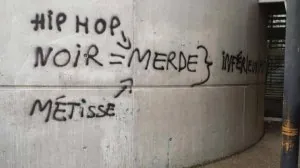 HIP HOP
NOIR = MERDE }
MÉTISSE